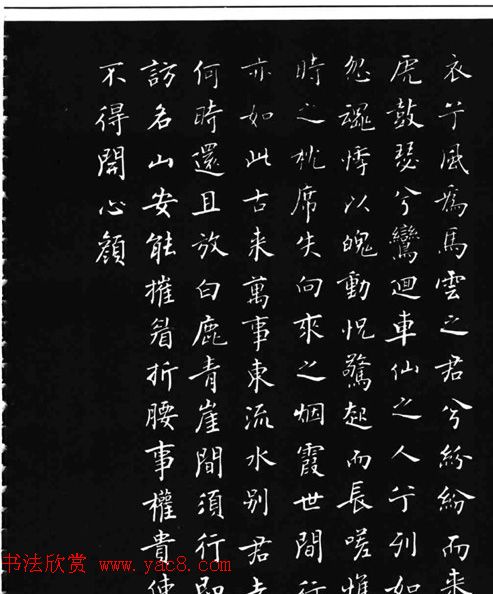 衣兮風爲馬雲之君兮紛紛而来
虎鼓瑟兮鸞迴車仙之人兮列如
忽魂悸以魄動怳驚起而長嗟惟
時之枕席失向來之烟霞世間行
亦如此古来萬事東流水別君去
何時還且放白鹿青崖間須行即
訪名山安能摧眉折腰事權貴使
不得開心顔
书法欣赏 www.yac8.com